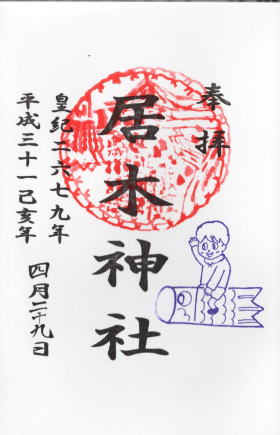 奉拝
居木神社
皇紀二六七九年
平成三十一己亥年
四月二十九日